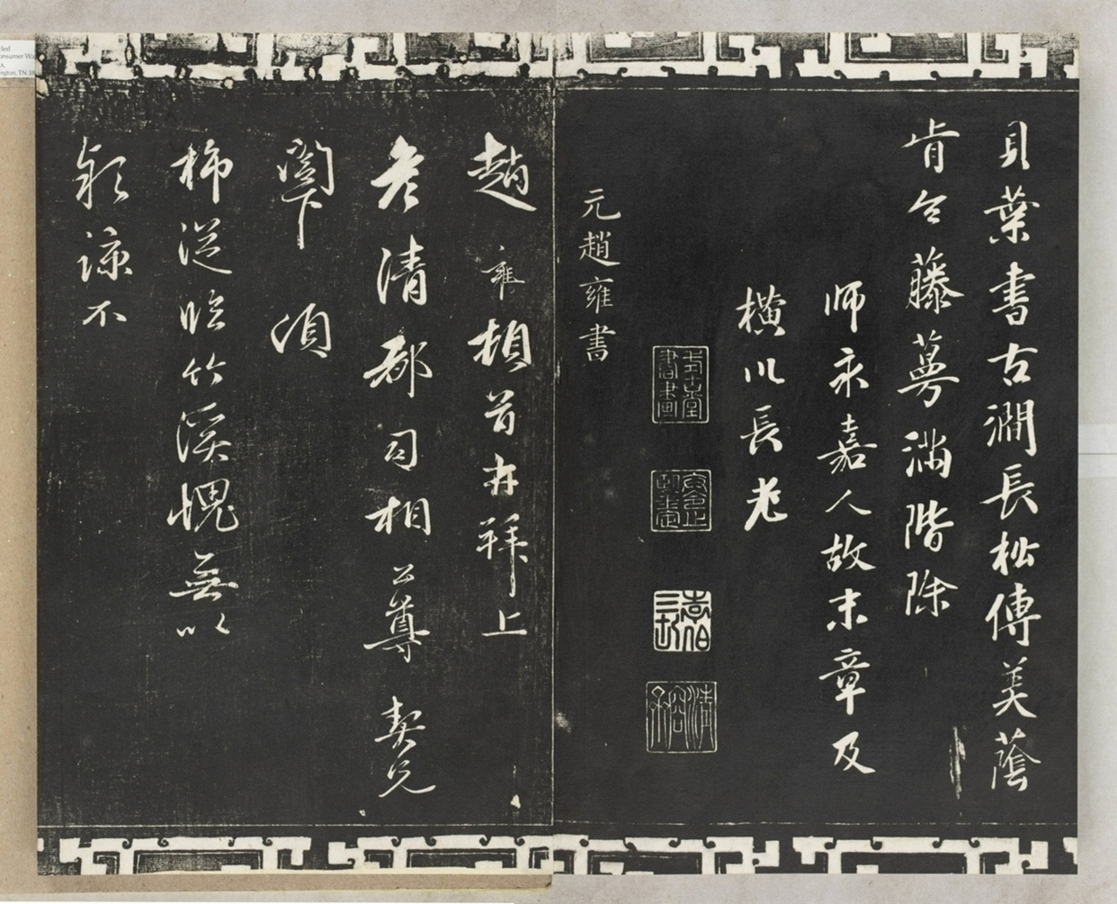 貝葉書古澗長松傳美蔭
肯令藤蔓滿階除
師永嘉人故末章及
橫川長老
式古堂書畫
元趙雍書
趙雍頓首再拜上
彥清都司相公尊契兄
閣下頃
旆從臨竹溪愧無以
欵諒不